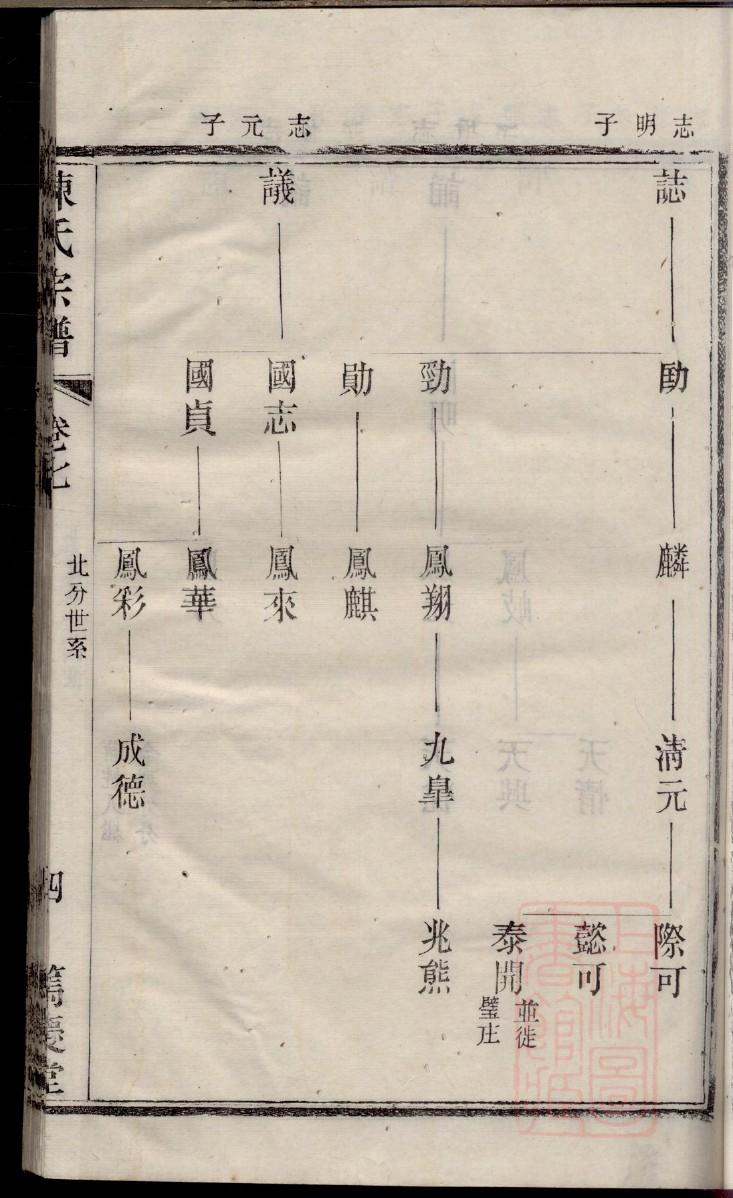 志明子
志元子
誌
議
劻
勁
勛
國志
國貞
麟
鳳翔
鳳麒
鳳來
鳳華
鳳彩
淸元
九臯
成德
際可
懿可
泰開
並徙
璧庄
兆熊
陳氏宗譜
卷七
北分世系
四
篤慶堂
上海圖書館藏